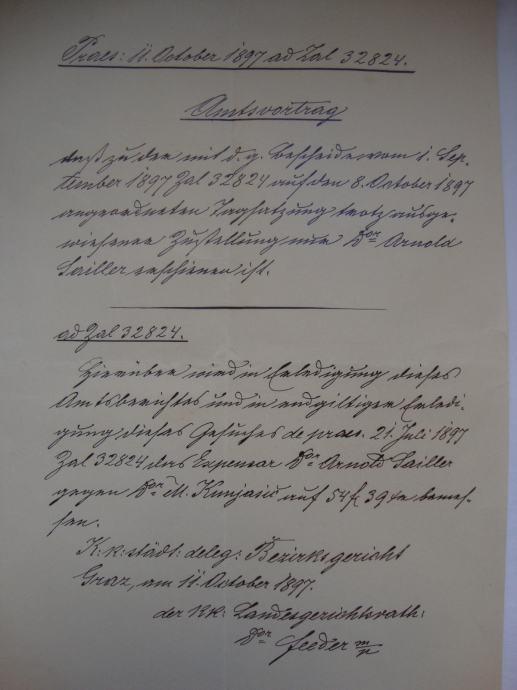 Praes: 11. October 1897 ad Zal 32824.
Amtsvortrag
daß zu der mit d. g. Bescheide vom 1. Sep-
tember 1897 Zal 32824 auf den 8. October 1897
angeordneten Tagsatzung trotz ausge-
wiesener Zustellung nur Dor Arnold
Sailler erschienen ist.
ad Zal 32824.
Hierüber wird in Erledigung dieses
Amtsberichtes und in endgiltiger Erledi-
gung dieses Gesuches de praes. 21. Juli 1897
Zal 32824 das Expensar Dor Arnold Sailler
gegen Dor M. auf 54 f 39 bemes-
sen.
K: k: städt: deleg: Bezirksgericht
Graz, am 11. October 1897.
der kk: Landesgerichtsrath:
Dor m/p